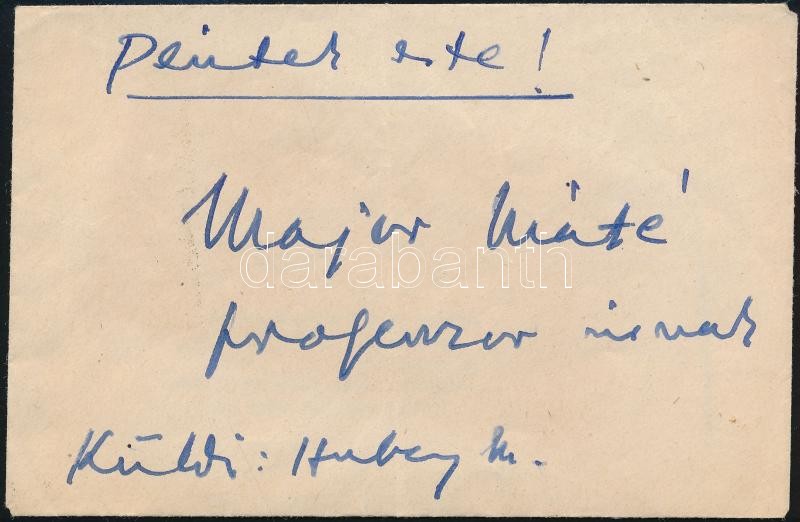 Péntek este!
Major Máté
darabanth
professzor úrnak
Küldi: Hubay M.